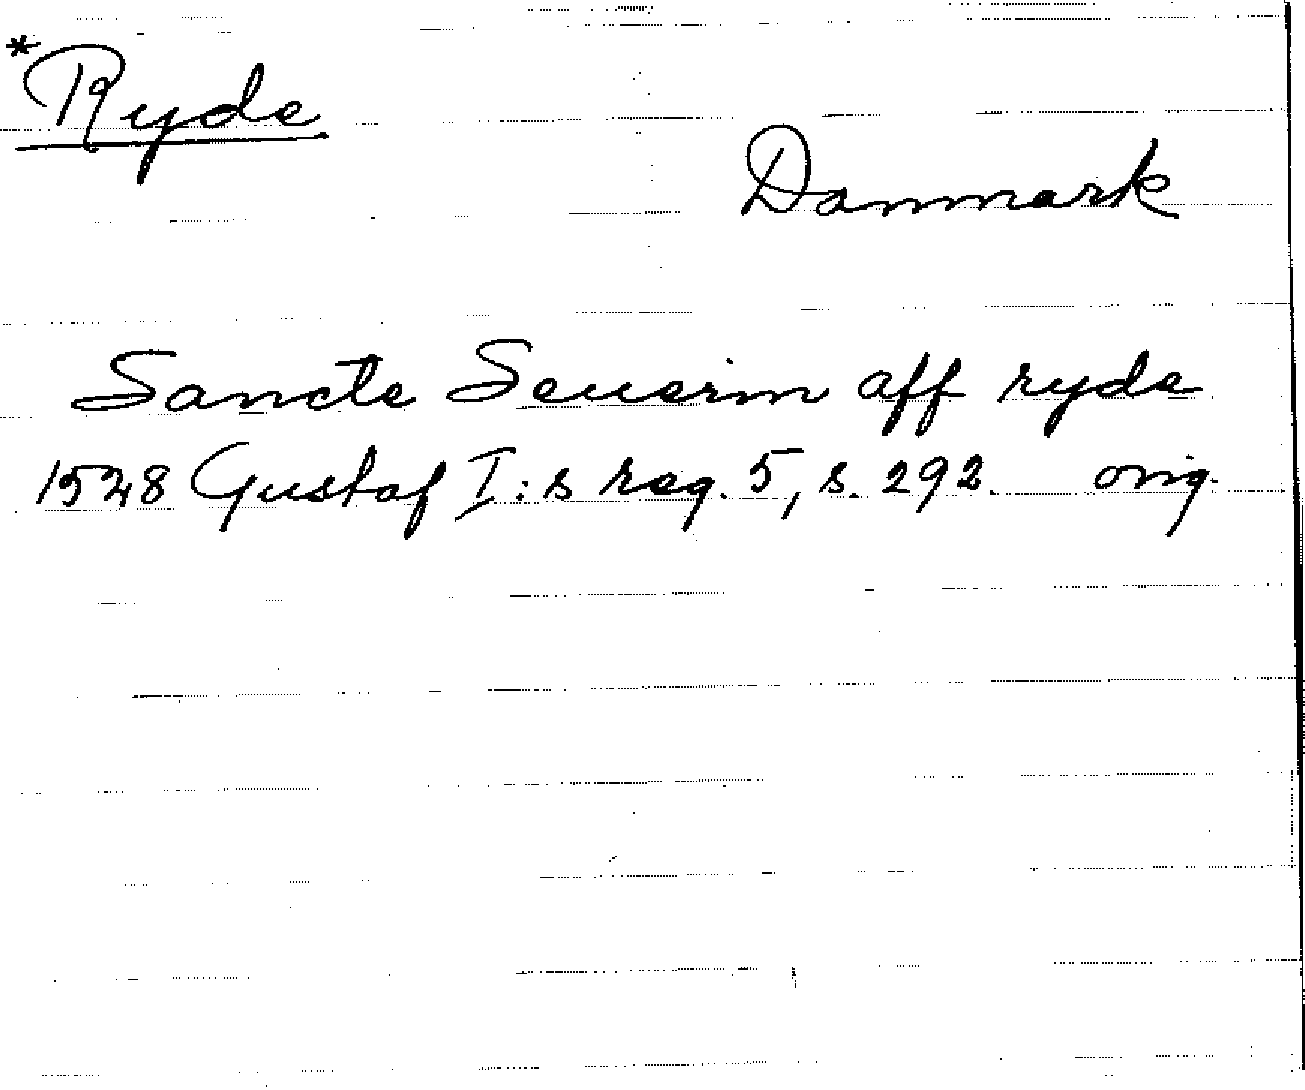 *Ryde
Danmark
Sancte Seuerin aff ryde
1528 Gustaf I:s reg. 5, s. 292. orig.